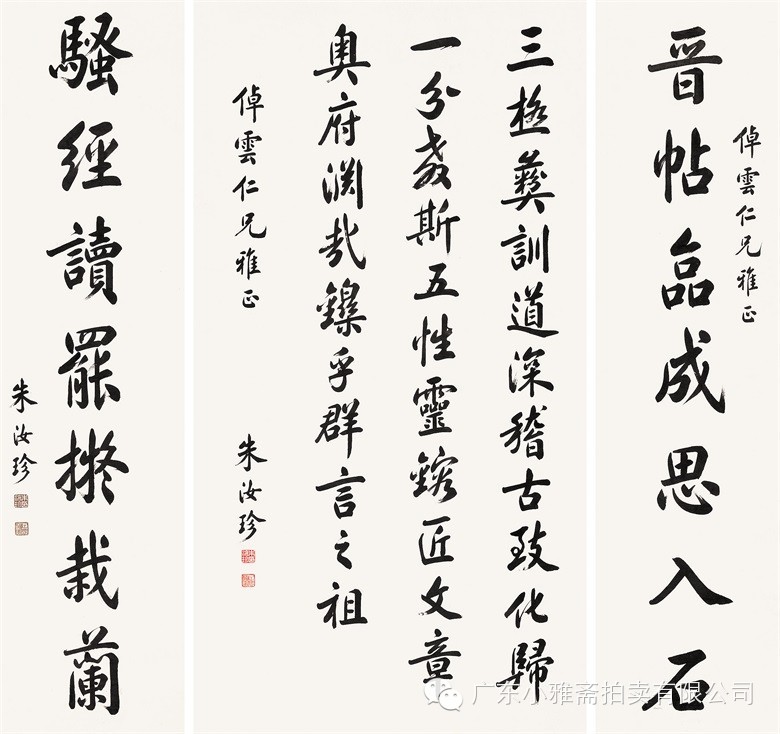 倬雲仁兄雅正
晉帖品成思入石
三極彝訓道深稽古致化歸
一分教斯五性靈鎔匠文章
奥府渊哉鑠乎群言之祖
倬雲仁兄雅正
朱汝珍
騷經讀罷擬栽蘭
朱汝珍
广东小雅斋拍卖有限公司